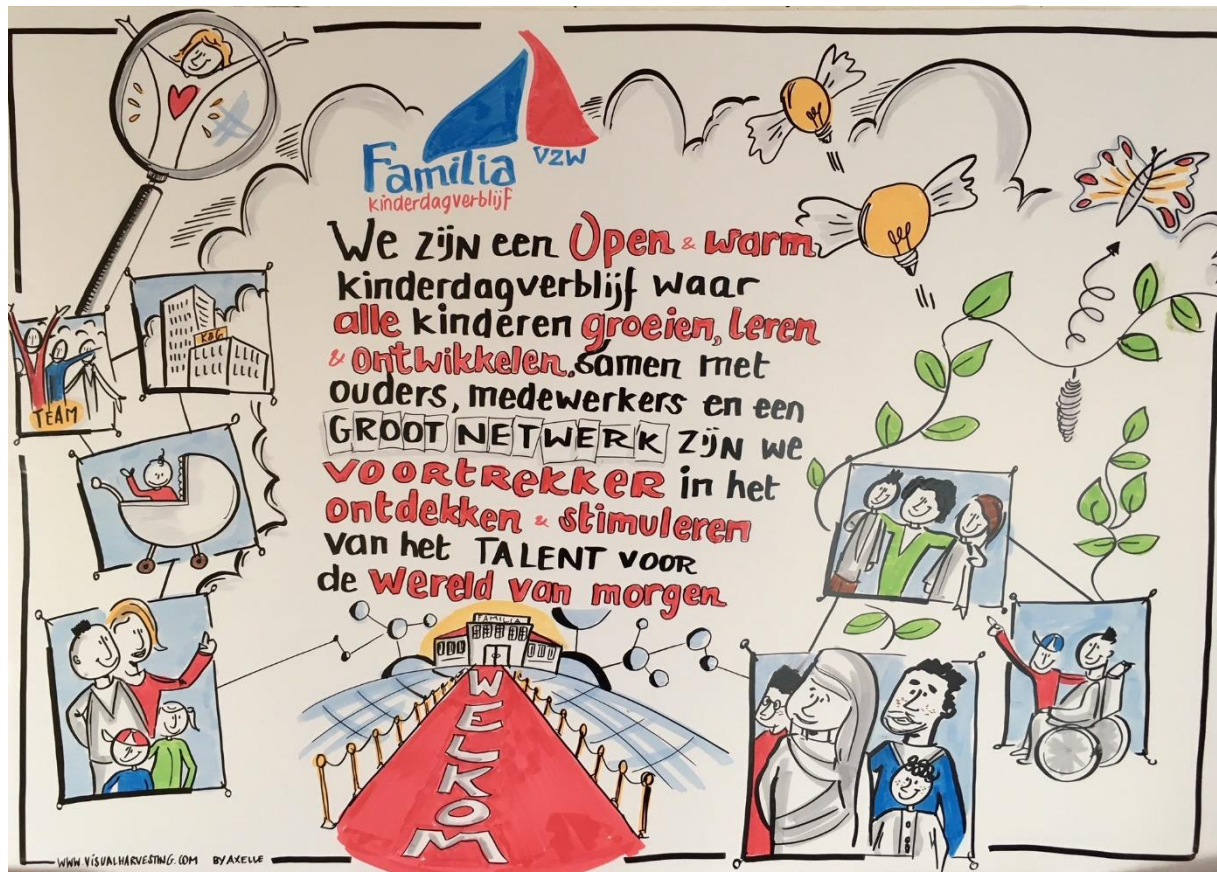 Familia
VZW
kinderdagverblijf
We zijn een Open & warm
kinderdagverblijf waar
alle kinderen groeien, leren
& ontwikkelen. Samen met
ouders, medewerkers en een
GROOT NETWERK zijn we
VOORTREKKER in het
ontdekken & stimuleren
van het TALENT VOOR
de wereld van morgen
TEAM
K&G
FAMILIA
WELKOM
WWW.VISUALHARVESTING.COM BY AXELLE